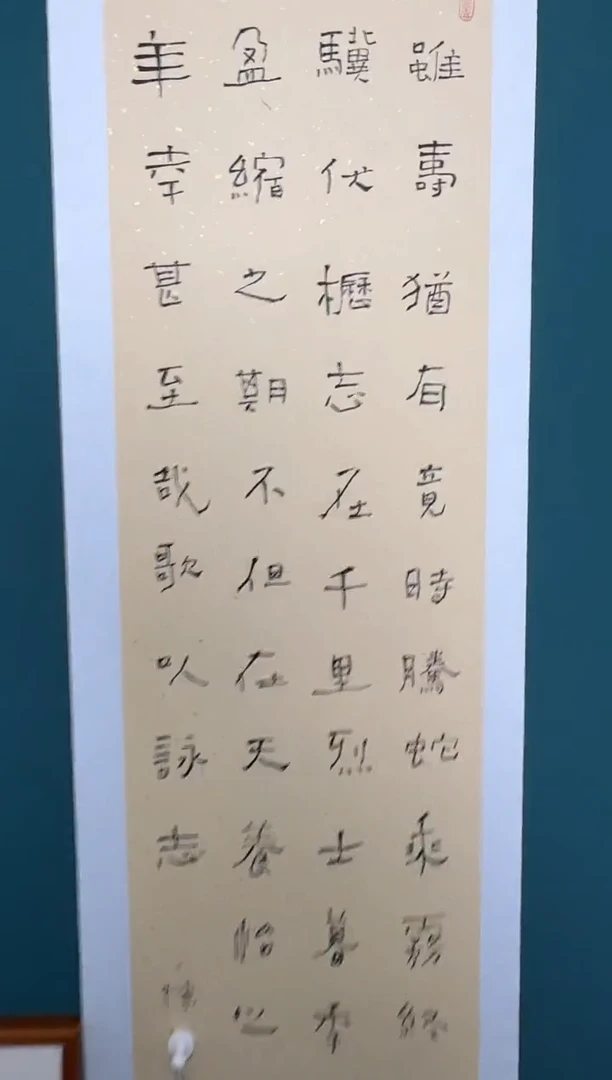 雖壽猶有竟時騰蛇乘霧終
驥伏櫪志在千里烈士暮年
盈縮之期不但在天養怡之
年幸甚至哉歌以詠志